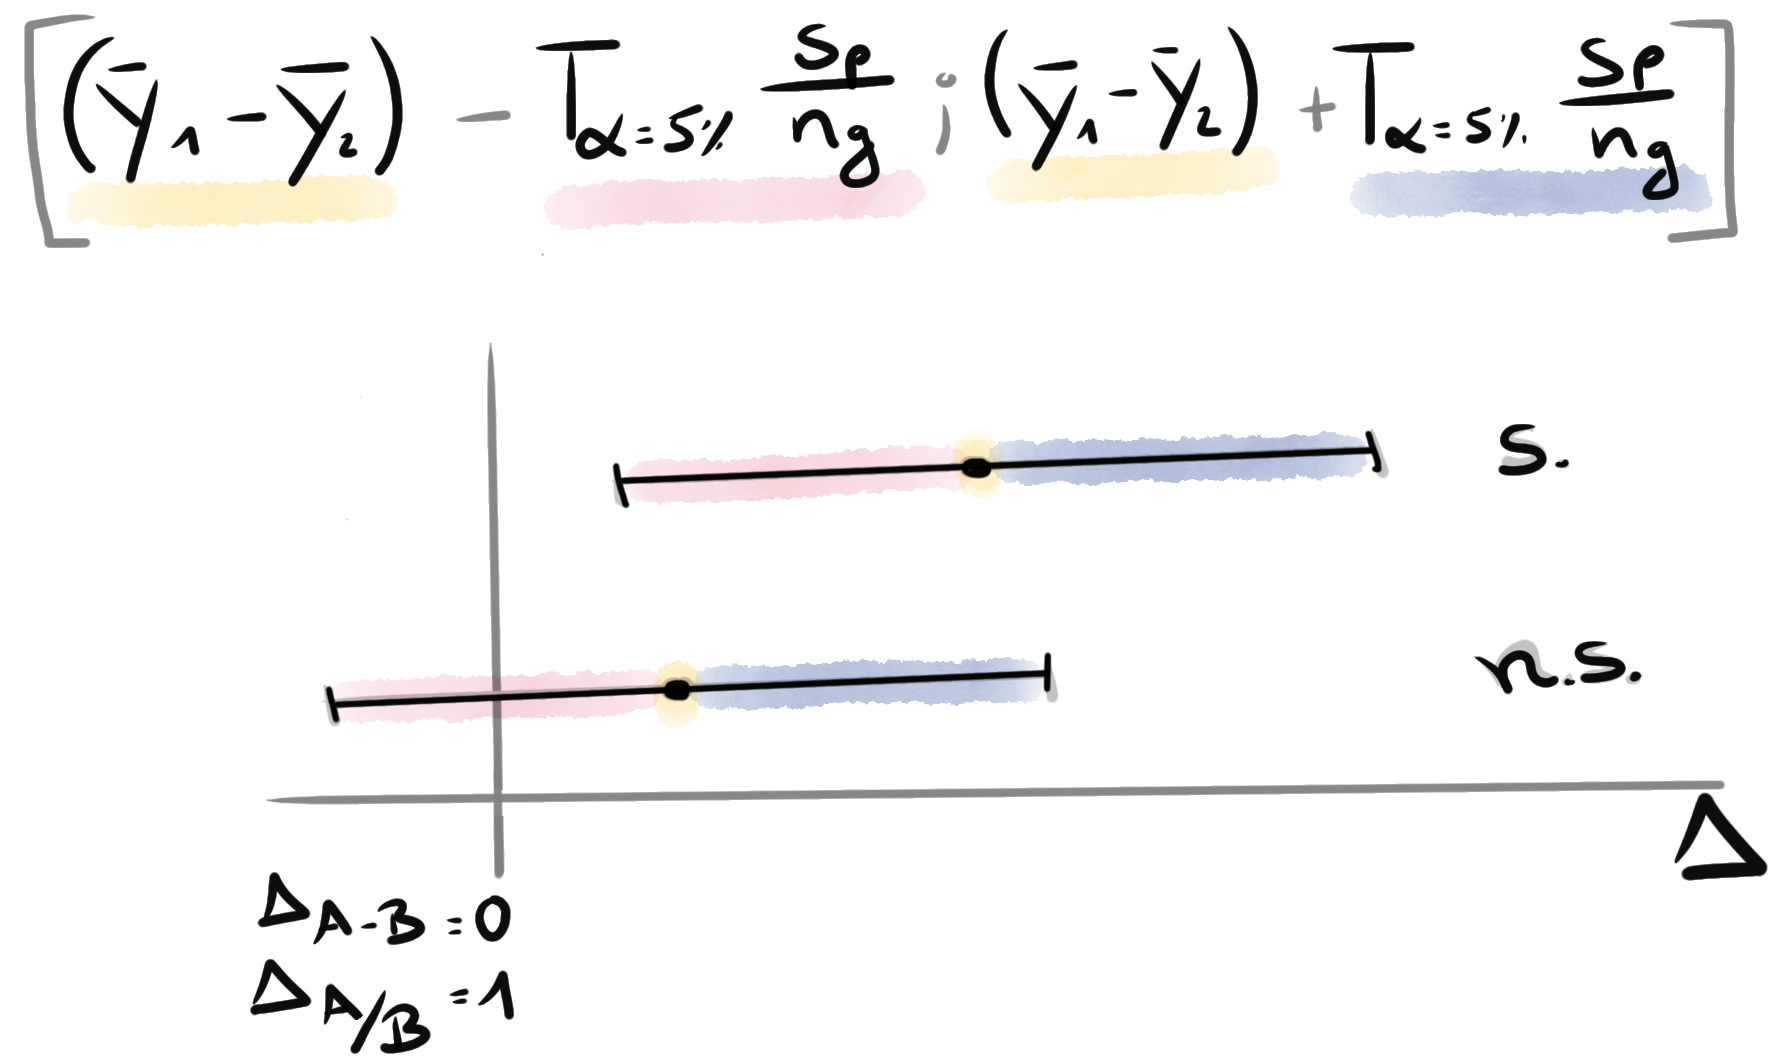 [(ȳ₁ - ȳ₂) - T α=5% sp/ng ; (ȳ₁ - ȳ₂) + T α=5% sp/ng]
s.
n.s.
Δ
Δ A-B = 0
Δ A/B = 1